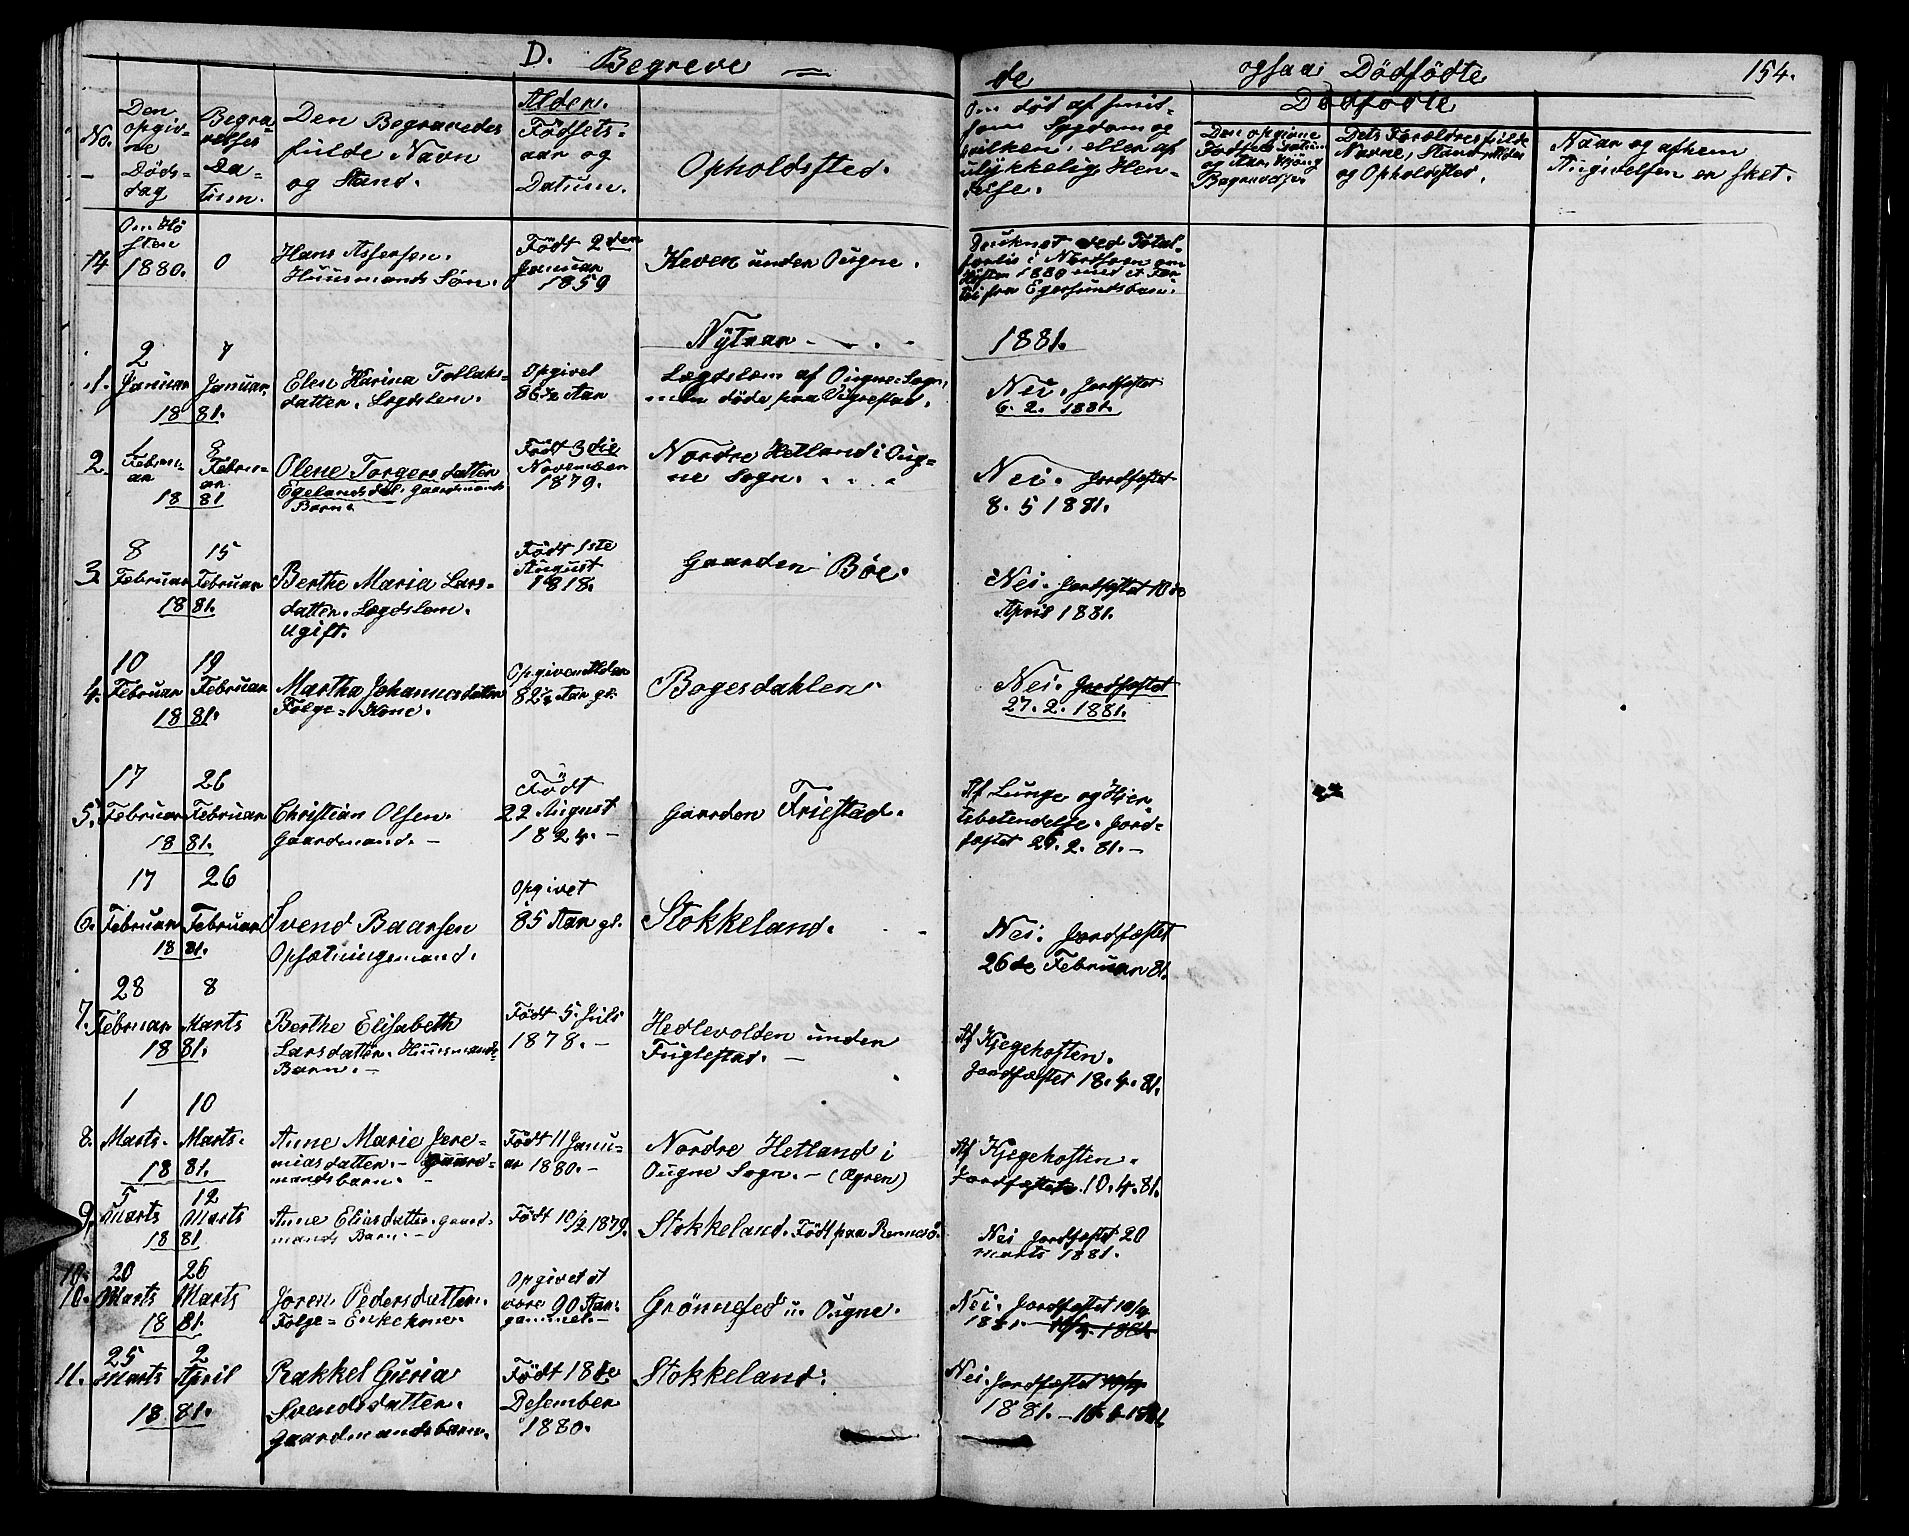 D. Begrave = de ogsaa Dödfödte 154.
No. –
Den opgivne Dödsdag
Begravelses Datum.
Den Begravedes fulde Navn og Stand.
Alder. Födsels-aar og Datum.
Opholdssted.
Om död af smitsom Sygdom og hvilken, eller af ulykkelig Hendelse.
Dödfödte
Naar og afhvem Angivelsen er sket.
14 Om Hösten 1880. 0
Hans Assersen.
Huusmands Sön.
Födt 2den
Januar
1859
Heven under Ougne.
Druknet ved Totalforlis i Nordsöen om Hösten 1880 med et Fartöi fra Egersund
Nÿtaar – . – 1881.
1. 2 Januar 7 Januar 1881.
Elen Karina Tollaks-
datter. Legdslem.
Opgivet
86½ Aar
Lægdslem af Ougne Sogn,
men döde paa Ogrestad.
Nei. Jordfæstet
6. 2. 1881.
2. 1 Februar 9 Februar 1881
Olene Torgersdatter
Egelandsdal. Gaardmands
Barn.
Födt 3die
November
1879.
Nordre Hetland i Oug-
ne Sogn.
Nei. Jordfæstet
8. 5 1881.
3. 8 Februar 15 Februar 1881.
Berthe Maria Lars-
datter. Lægdslem.
Ugift.
Födt 1ste
August
1818.
Gaarden Böe.
Nei. Jordfæstet 10de
April 1881.
4. 10 Februar 19 Februar 1881.
Martha Johannesdatter
Folge-Kone.
Opgiven Alder
82½ Aar gl.
Bogesdahlen.
Nei. Jordfæstet
27. 2. 1881.
5. 17 Februar 26 Februar 1881.
Christian Olsen.
Gaardmand. –
Födt
22 August
1824. –
Gaarden Friestad.
Af Lunge og Hjer
tebetendelse. Jord-
fæstet 26. 2. 81. –
6. 17 Februar 26 Februar 1881.
Svend Baarsen
Opsætningsmand.
Opgivet
85 Aar gl.
Stokkeland.
Nei. Jordfæstet
26de Februar 81.
7. 28 Februar 8 Marts 1881.
Berthe Elisabeth
Larsdatter. Huusmands-
Barn. –
Födt 5. Juli
1878. –
Hedlevolden under
Fuglestad. –
Af Kjegehosten.
Jordfæstet 18. 4. 81.
8. 1 Marts. 10 Marts. 1881.
Anne Marie Jere-
miasdatter. – Gaard-
mandsbarn.
Födt 11 Janu-
ar 1880. –
Nordre Hetland i
Ougne Sogn. – (Ogren)
Af Kjegehosten.
Jordfæstet 10. 4. 81.
9. 5 Marts 12 Marts 1881
Anne Eliasdatter. Gaard-
mands Barn. –
Födt 10/2 1879.
Stokkeland. Födt paa Rennesö.
Nei Jordfæstet 20
marts 1881.
10. 20 Marts 26 Marts 1881.
Joren Pedersdatter.
Folge-Enkekone.
Opgivet at
være 90 Aar
gammel. –
Grönnefed u. Ougne.
Nei. Jordfæstet 10/4
1881.
11. 25 Marts 2 April 1881.
Rakkel Guria
Svendsdatter.
Gaardmandsbarn.
Födt 18de
Desember
1880.
Stokkeland.
Nei. Jordfæstet
1881.